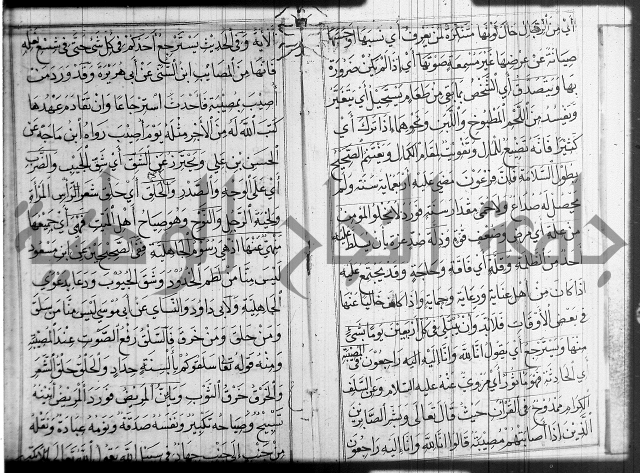 أي من الرجال حال كونها متنكرة لمن يعرف أي نسبها أو حسبها
صيانة عن عرضها غير مسمعة صوتها أي إذا لم يكن ضرورة
بها ويتصدق أي الشخص بما بقي من طعام يستحيل أي يتغير
ويفسد من اللحم المطبوخ واللبن ونحوهما إذا ترك أي
كثيرا فانه تضييع للمال وتفويت لمقام الكمال ويغتنم الصحيح
بطول السلامة فان فرعون مضى عليه أربعماية سنة ولم
يحصل له صداع ولا حمى مقدار سنة وورد لا يخلو المؤمن
من علة أي مرض وضعف قوة وذلة ضد عز وبان يسلط عليه
أحد من الظلمة وقلة أي فاقة وحاجة وقد يجتمع عليه
إذا كان من أهل عناية ورعاية وحماية وإذا كان خاليا عنها
في بعض الأوقات فلا بد وان يبتلى في كل أربعين يوما بشيء
منها ويسترجع أي يقول إنا لله وإنا إليه راجعون في المصيبة
أي الحادثة فهو مأثور أي مروي عنه عليه السلام وعن السلف
الكرام ممدوح في القرآن حيث قال تعالى وبشر الصابرين
الذين إذا أصابتهم مصيبة قالوا إنا لله وإنا إليه راجعون
الآية وفي الحديث يسترجع أحدكم في كل شيء حتى في شسع نعله
فانها من المصايب ابن السني عن أبي هريرة وقد ورد من
أصيب بمصيبة فأحدث استرجاعا وان تقادم عهدها
كتب الله له من الأجر مثله يوم أصيب رواه ابن ماجه عن
الحسين بن علي ويحترز عن الشق أي شق الجيب والضرب
أي على الوجه والصدر والحلق أي حلق شعر الرأس للمرأة
ولحية الرجل والنوح وهو صياح أهل الميت فهي أي جميعها
نهي عنها إذ هي رسم الجاهلية ففي الصحيحين عن ابن مسعود
ليس منا من لطم الخدود وشق الجيوب ودعا بدعوى
الجاهلية ولأبي داود والنسائي عن أبي موسى ليس منا من سلق
ومن حلق ومن خرق فالسلق رفع الصوت عند المصيبة
ومنه قوله تعالى سلقوكم بألسنة حداد والحلق حلق الشعر
والخرق خرق الثوب ويأنّ المريض فورد المريض أنينه
تسبيح وصياحه تكبير ونفسه صدقة ونومه عبادة وتقلبه
من جنب إلى جنب جهاد في سبيل الله يقول الله تعالى
جامعة النجاح الوطنية